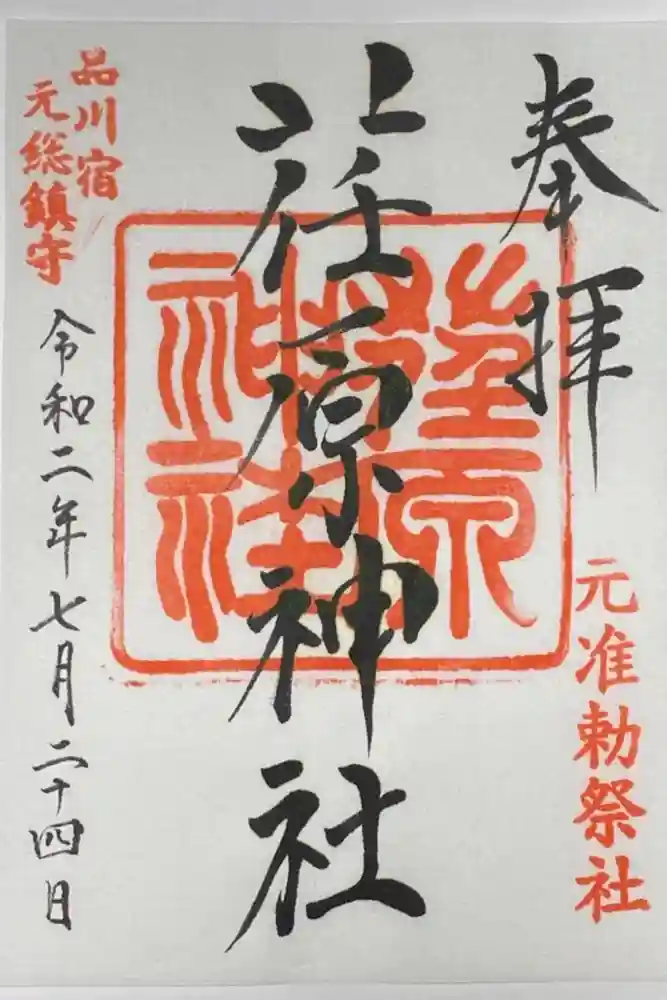 奉拝
元准勅祭社
荏原神社
品川宿
元総鎮守
令和二年七月二十四日